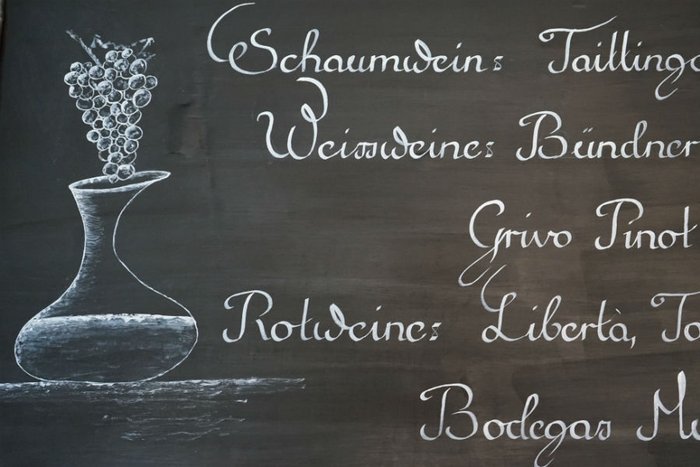 Schaumwein: Taittinge
Weissweine: Bündner
Grivo Pinot
Rotweine: Libertà, To
Bodegas Mu